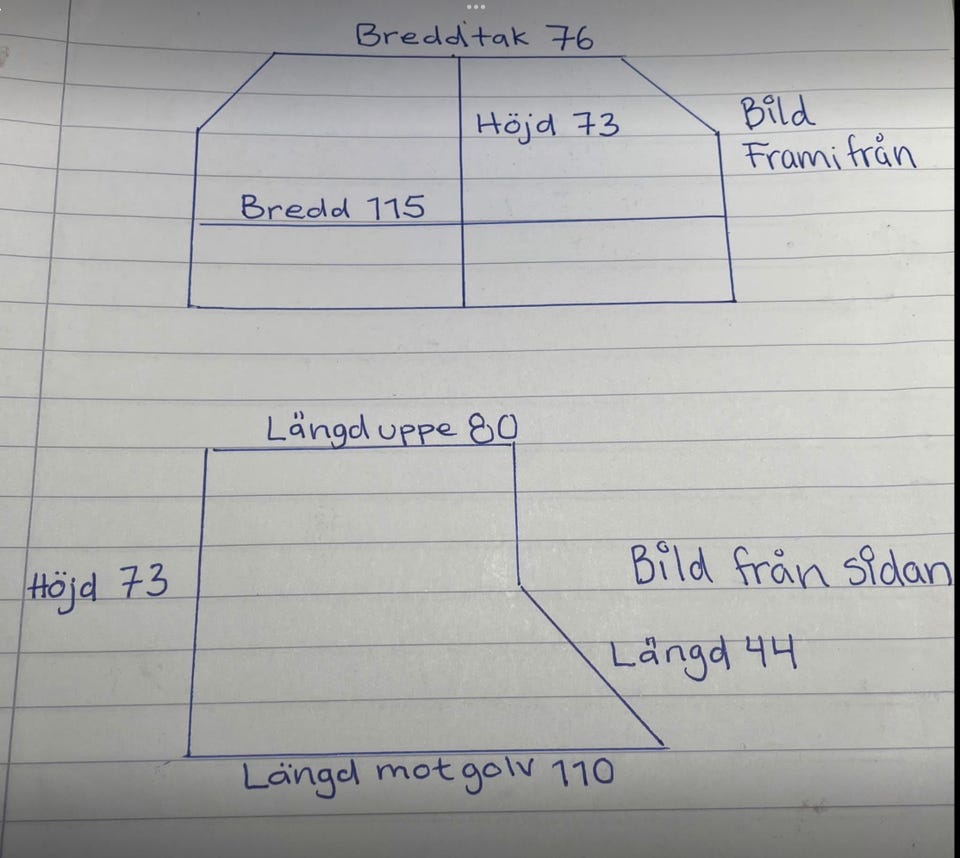 Bredd tak 76
Höjd 73
Bild
Framifrån
Bredd 115
Längd uppe 80
Höjd 73
Bild från sidan
Längd 44
Längd mot golv 110